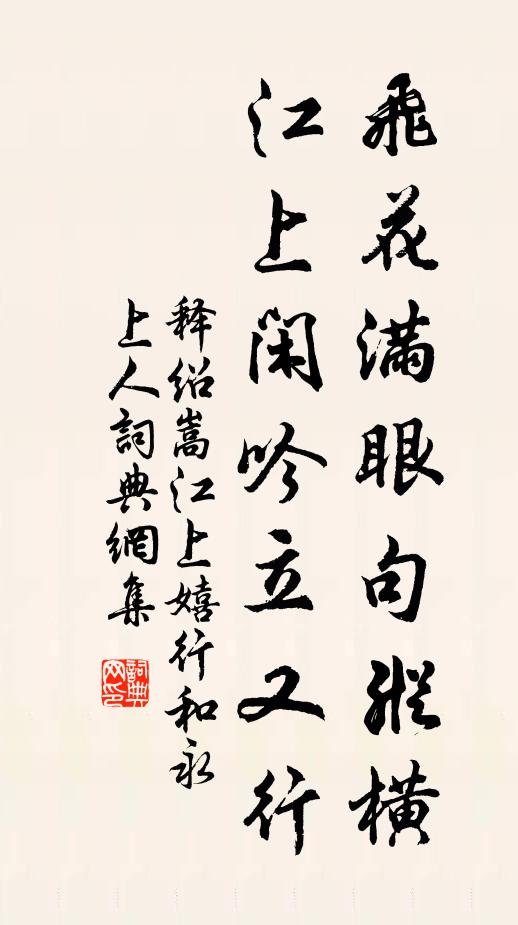 飛花滿眼句縱橫
江上閑吟立又行
释绍嵩江上嬉行和永
上人詞典網集
詞典
网印